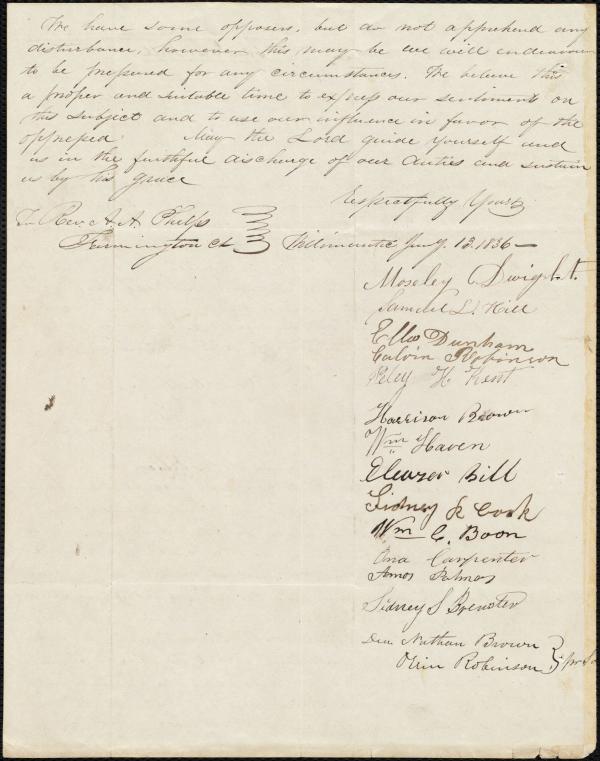 We have some opposers, but do not apprehend any
disturbance, however this may be we will endeavour
to be prepared for any circumstances. We believe this
a proper and suitable time to express our sentiments on
this subject and to use our influence in favor of the
oppressed May the Lord guide yourself and
us in the faithful discharge of our duties and sustain
us by his grace
Respectfully Yours
To Rev. A. A. Phelps
Farmington Ct
Willimantic Jany. 12. 1836 —
Moseley Dwight.
Samuel L. Hill
Dunham
Calvin Robinson
H. Kent
Harrison Brown
Wm Haven
Eleazer Bill
Sidney Cook
Wm C. Boon
Ora Carpenter
Amos Palmer
Sidney S Brewster
Dea Nathan Brown
Orin Robinson